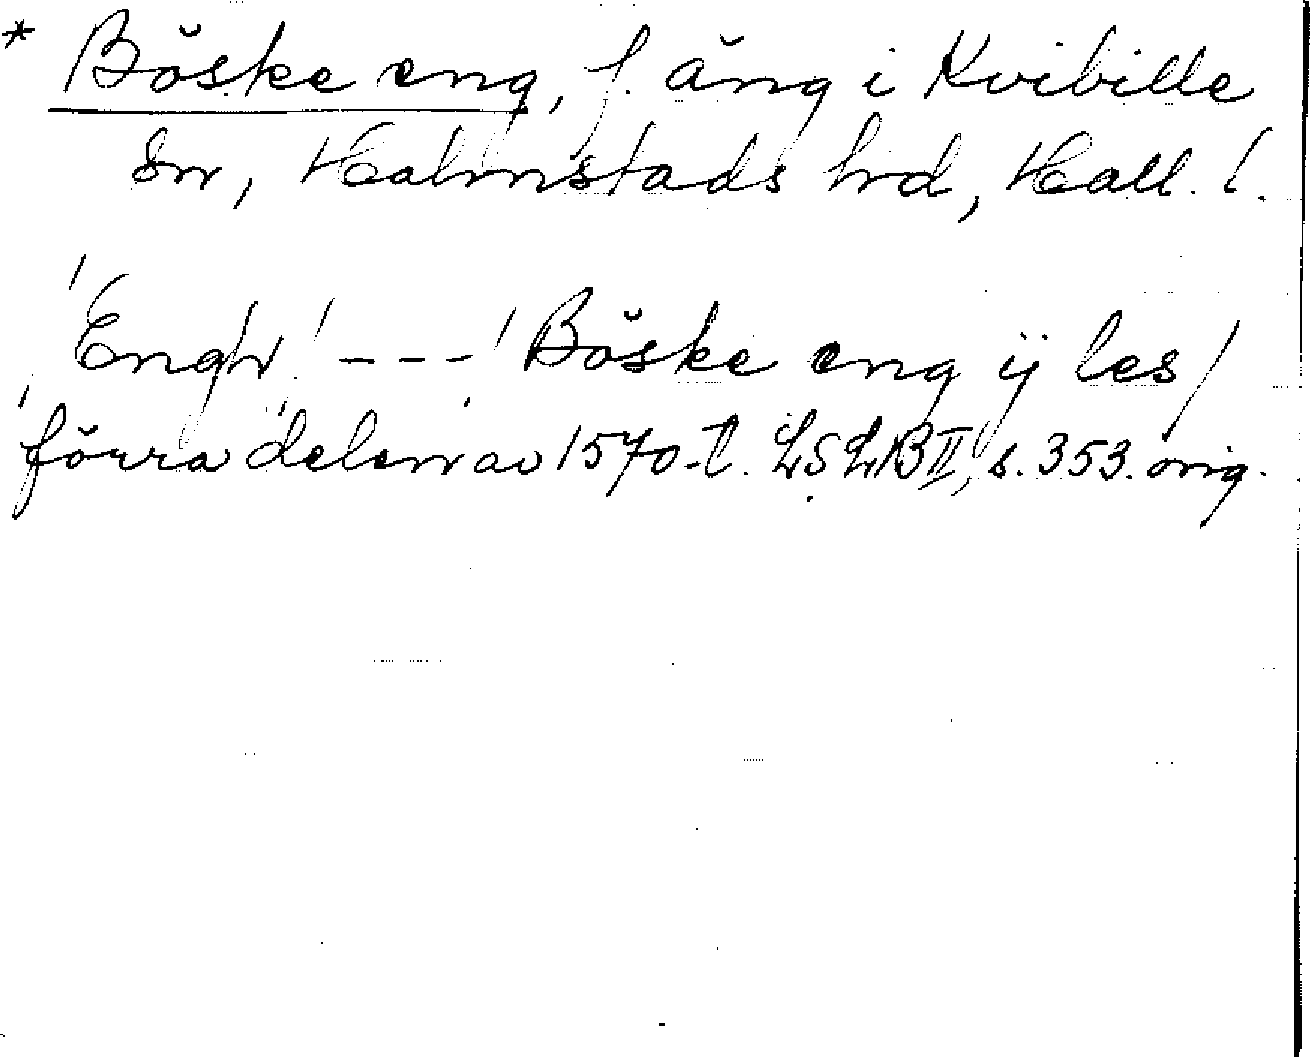 * Böske eng, f. äng i Kvibille
sn, Halmstads hrd, Hall. l.
/Engh/ --- /Böske eng ÿ les/
förra delen av 1570-t. LSLB II, s. 353. orig.